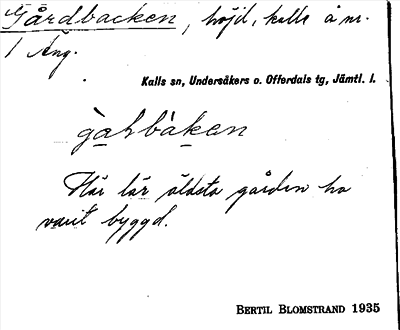 Gårdbacken, höjd, kalls å nr.
1 Äng.
Kalls sn, Undersåkers o. Offerdals tg, Jämtl. l.
gàhbàken
Här lär äldsta gården ha
varit byggd.
BERTIL BLOMSTRAND 1935